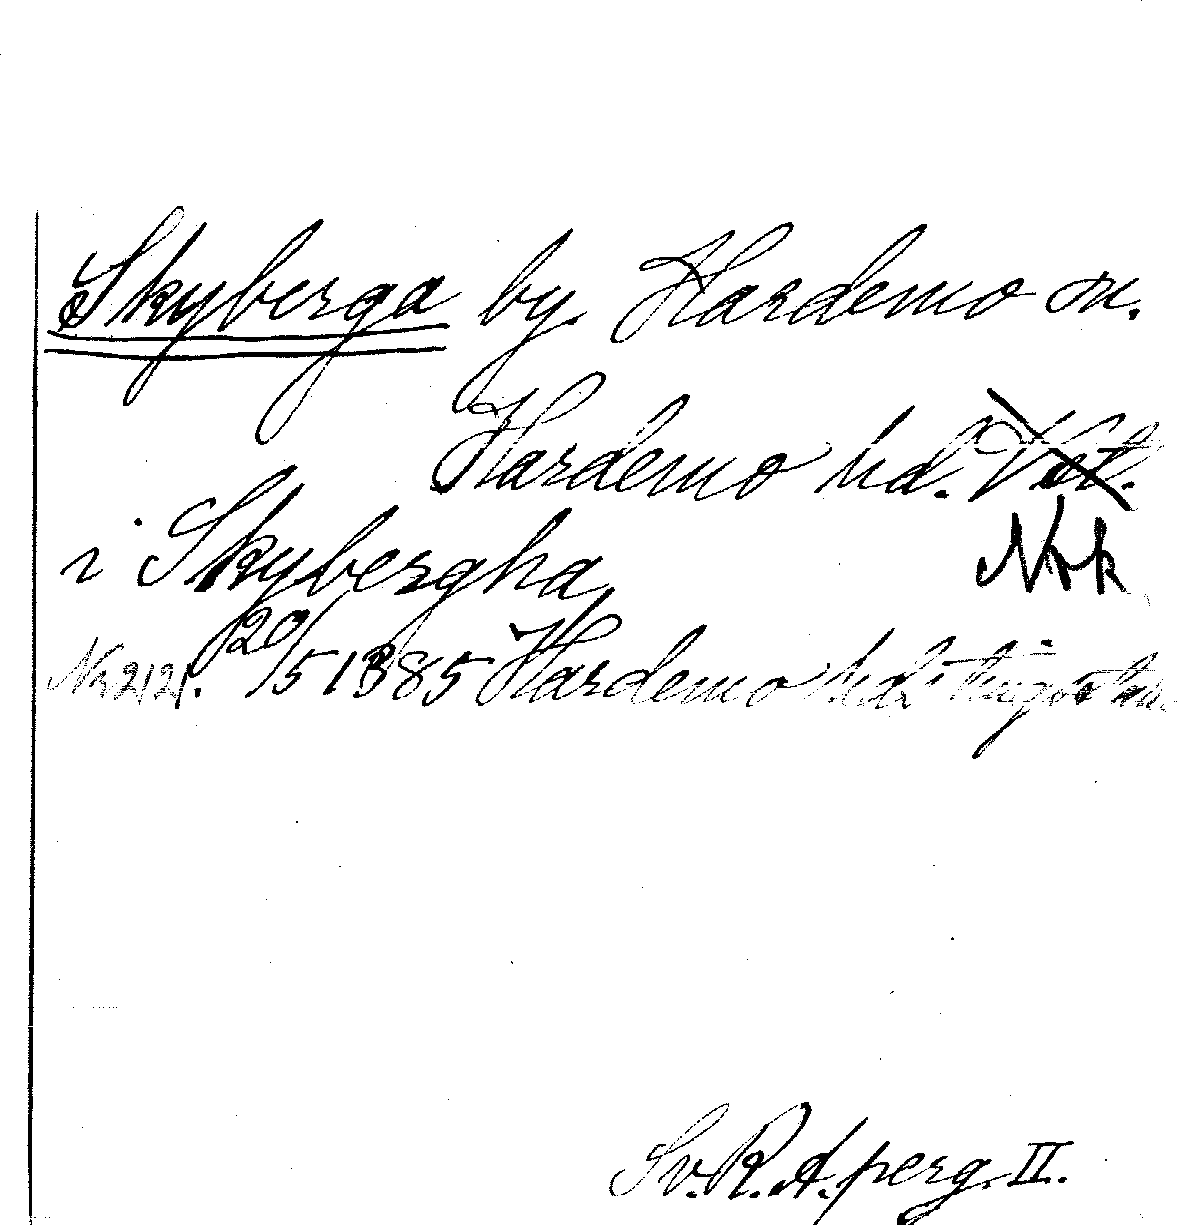 Skyberga by. Hardemo sn.
Hardemo hd. Vst.
i Skybergha Nrk
Nr 2121. 20/5 1385 Hardemo hds tingställe
Sv. R. A. perg. II.